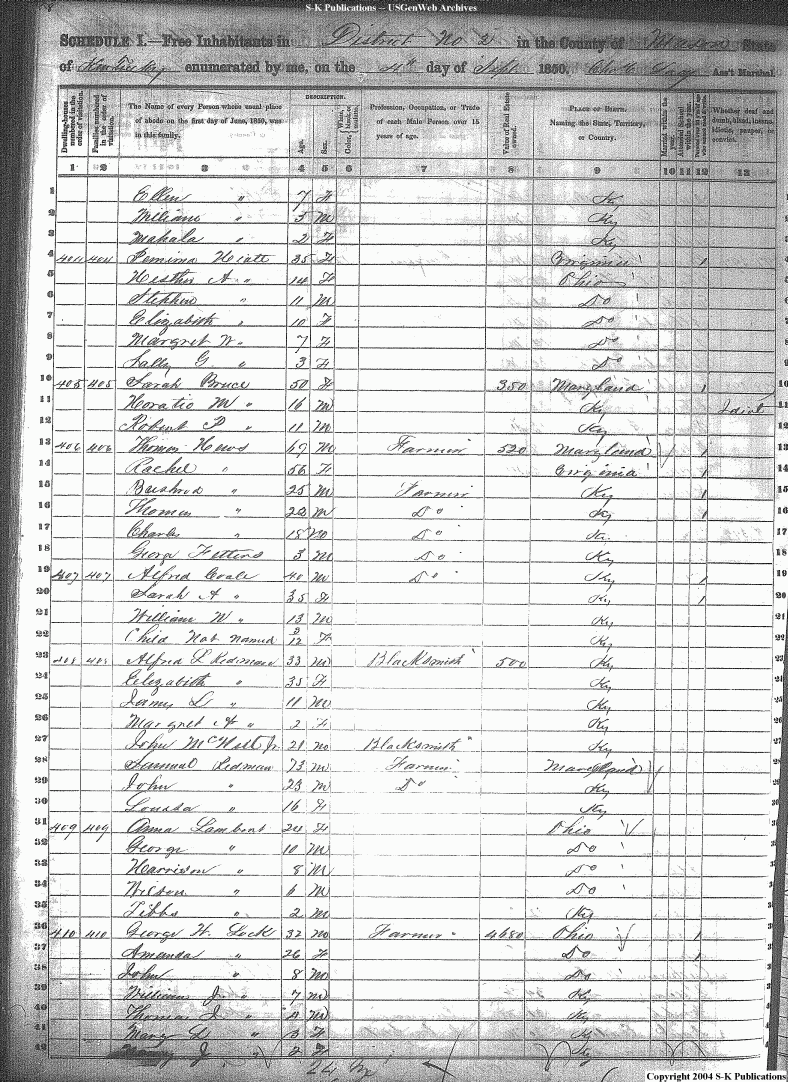 S-K Publications -- USGenWeb Archives
SCHEDULE I.—Free Inhabitants in District No 2 in the County of Mason State
of Kentucky enumerated by me, on the 4th day of Sept 1850. Ass't Marshal.
Dwelling-houses numbered in the order of visitation.
Families numbered in the order of visitation.
The Name of every Person whose usual place of abode on the first day of June, 1850, was in this family.
DESCRIPTION.
Age.
Sex.
Color, White, black, or mulatto.
Profession, Occupation, or Trade of each Male Person over 15 years of age.
Value of Real Estate owned.
PLACE OF BIRTH. Naming the State, Territory, or Country.
Married within the year.
Whether deaf and dumb, blind, insane, idiotic, pauper, or convict.
1 2 3 4 5 6 7 8 9 10 11 12 13
1 Ellen " 7 F Ky
2 William " 5 M Ky
3 Mahala " 2 F Ky
4 404 404 Jemima Hiatt 35 F Virginia 1
5 Hesther A " 14 F Ohio
6 Stephen " 11 M Do
7 Elizabeth " 10 F Do
8 Margret W " 7 F Do
9 Sally G " 3 F Do
10 405 405 Sarah Bruce 50 F 350 Maryland 1
11 Horatio M " 16 M Ky Idiot
12 Robert P " 11 M Ky
13 406 406 Thomas Hews 67 M Farmer 520 Maryland 1
14 Rachel " 56 F Virginia 1
15 Bushrod " 25 M Farmer Ky 1
16 Thomas " 22 M Do Ky 1
17 Charles " 18 M Do Ky
18 Georg Fetters 3 M Do Ky
19 407 407 Alfred Coale 40 M Do Ky 1
20 Sarah A " 35 F Ky 1
21 William W " 13 M Ky
22 Child Not Named 2/12 F Ky
23 408 408 Alfred L Redman 33 M Blacksmith 500 Ky
24 Elizabeth " 35 F Ky
25 James L " 11 M Ky
26 Margret A " 2 F Ky
27 John McWett Jr 21 M Blacksmith Ky
28 Samuel Redman 73 M Farmer Maryland
29 John " 23 M Do Ky
30 Louisa " 16 F Ky
31 409 409 Anna Lambert 24 F Ohio
32 George " 10 M Do
33 Harrison " 8 M Do
34 Wilson " 6 M Do
35 Tibbs " 2 M Ky
36 410 410 George W. Lock 32 M Farmer 4680 Ohio 1
37 Amanda " 26 F Do 1
38 John " 8 M Do
39 William J " 7 M Ky
40 Thomas J " 4 M Ky
41 Mary " 3 F Ky
42 J " 2 F Ky
Copyright 2004 S-K Publications